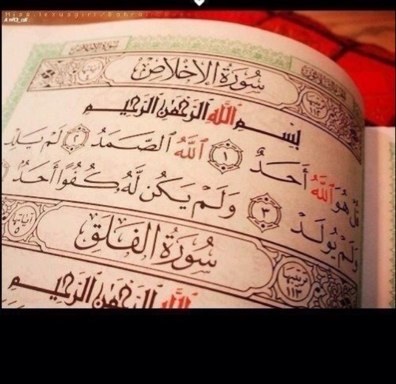 سُورَةُ الإِخْلَاصِ
بِسْمِ اللَّهِ الرَّحْمَٰنِ الرَّحِيمِ
قُلْ هُوَ اللَّهُ أَحَدٌ ١ اللَّهُ الصَّمَدُ ٢ لَمْ يَلِدْ
وَلَمْ يُولَدْ ٣ وَلَمْ يَكُن لَّهُ كُفُوًا أَحَدٌ
سُورَةُ الْفَلَقِ
١١٣
اللَّهِ الرَّحْمَٰنِ الرَّحِيمِ